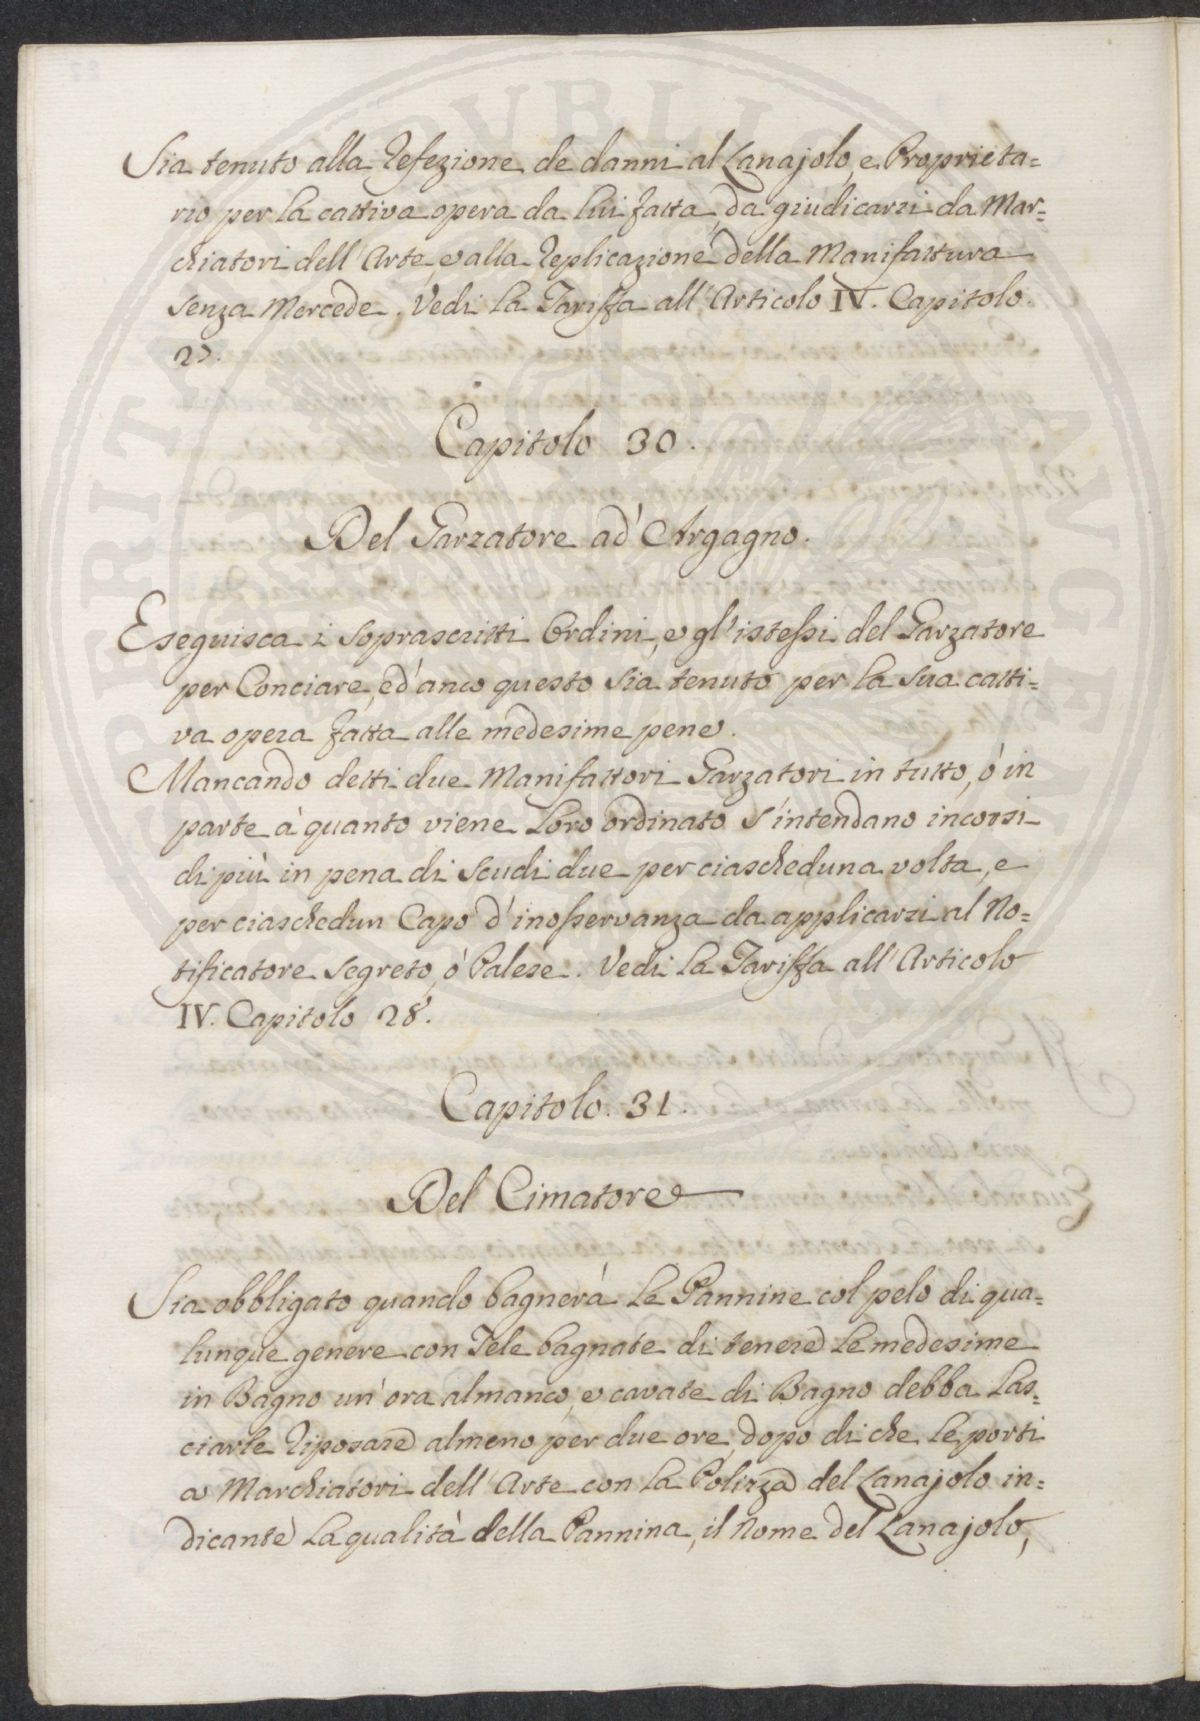 Sia tenuto alla refezione de danni al Lanajolo, e Proprieta=
rio per la cattiva opera da lui fatta, da giudicarsi da Mar=
chiatori dell' Arte, e alla replicazione della Manifattura
senza Mercede. Vedi la Tariffa all' Articolo IV. Capitolo
27.
Capitolo 30.
Del Garzatore ad' Argagno.
Eseguisca i soprascritti Ordini, e gl' istessi del Garzatore
per Conciare, ed' anco questo sia tenuto per la sua catti=
va opera fatta alle medesime pene.
Mancando detti due Manifattori Garzatori in tutto, ò in
parte à quanto viene loro ordinato s' intendano incorsi
di più in pena di scudi due per ciascheduna volta, e
per ciaschedun Capo d' inosservanza da applicarsi al No=
tificatore segreto, ò Palese. Vedi la Tariffa all' Articolo
IV. Capitolo 28.
Capitolo. 31.
Del Cimatore
Sia obbligato quando bagnerà le Pannine col pelo di qua=
lunque genere con Tele bagnate di tenere le medesime
in Bagno un' ora almanco, e cavate di Bagno debba las=
ciarle riposare almeno per due ore, dopo di che le porti
a Marchiatori dell' Arte con la Polizza del Lanajolo in=
dicante la qualità della Pannina, il Nome del Lanajolo,
REPVBLICA
PERITA
LVCENSIS